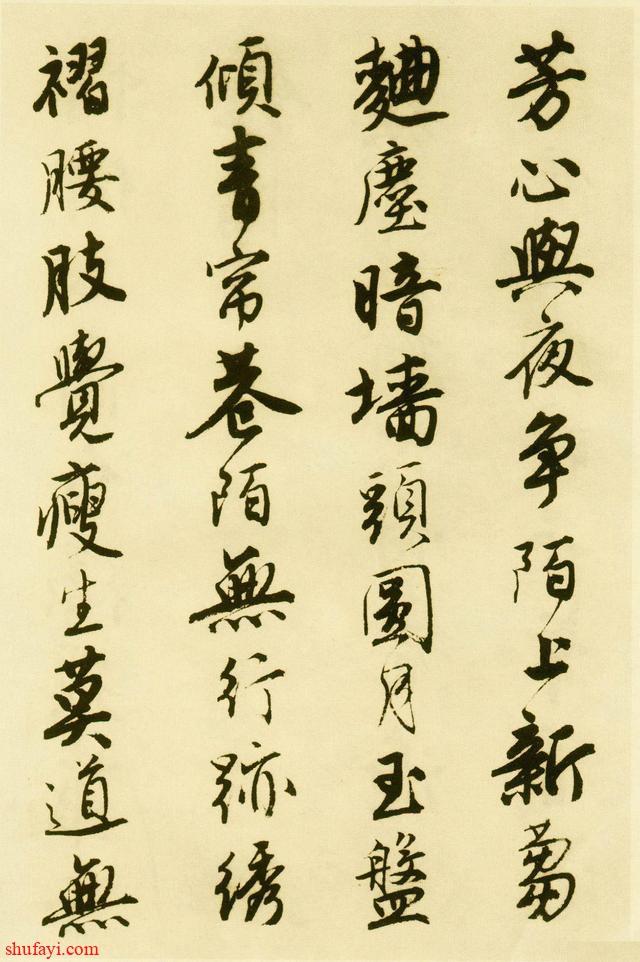 芳心與夜争陌上新蒭
麯塵暗墻頭圓月玉盤
傾青帘巷陌無行跡綉
褶腰肢覺瘦生莫道無
shufayi.com